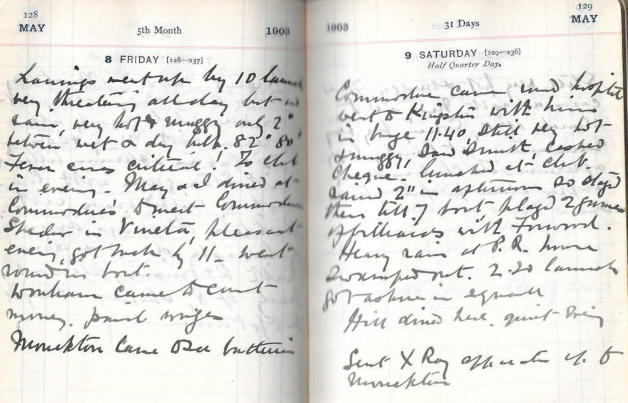 128
MAY
5th Month
1903
8 FRIDAY [128-237]
went up by 10 launch
very threatening all day but no
rain, very hot & muggy only 2°
between wet & dry bulb. 82° 80°
Fever cases critical! To club
in evening. May & I dined at
Commodore's to meet Commodore
in Vineta, pleasant
evening, got back by 11. went
round in boat.
came to count
money. paid wages
Monckton came to see
1903
31 Days
129
MAY
9 SATURDAY [129-236]
Half Quarter Day.
Commodore came round hospital
went to Kingston with him
in barge 11.40 Still very hot
& muggy, Saw cashed
cheque. lunched at club
rained 2" in afternoon so stayed
there till 7 boat played 2 games
of billiards with
Heavy rain at P.R.
swamped out. 2.20 launch
got ashore in squall
Hill dined here. quiet evening
Sent X Ray apparatus up to
Monckton